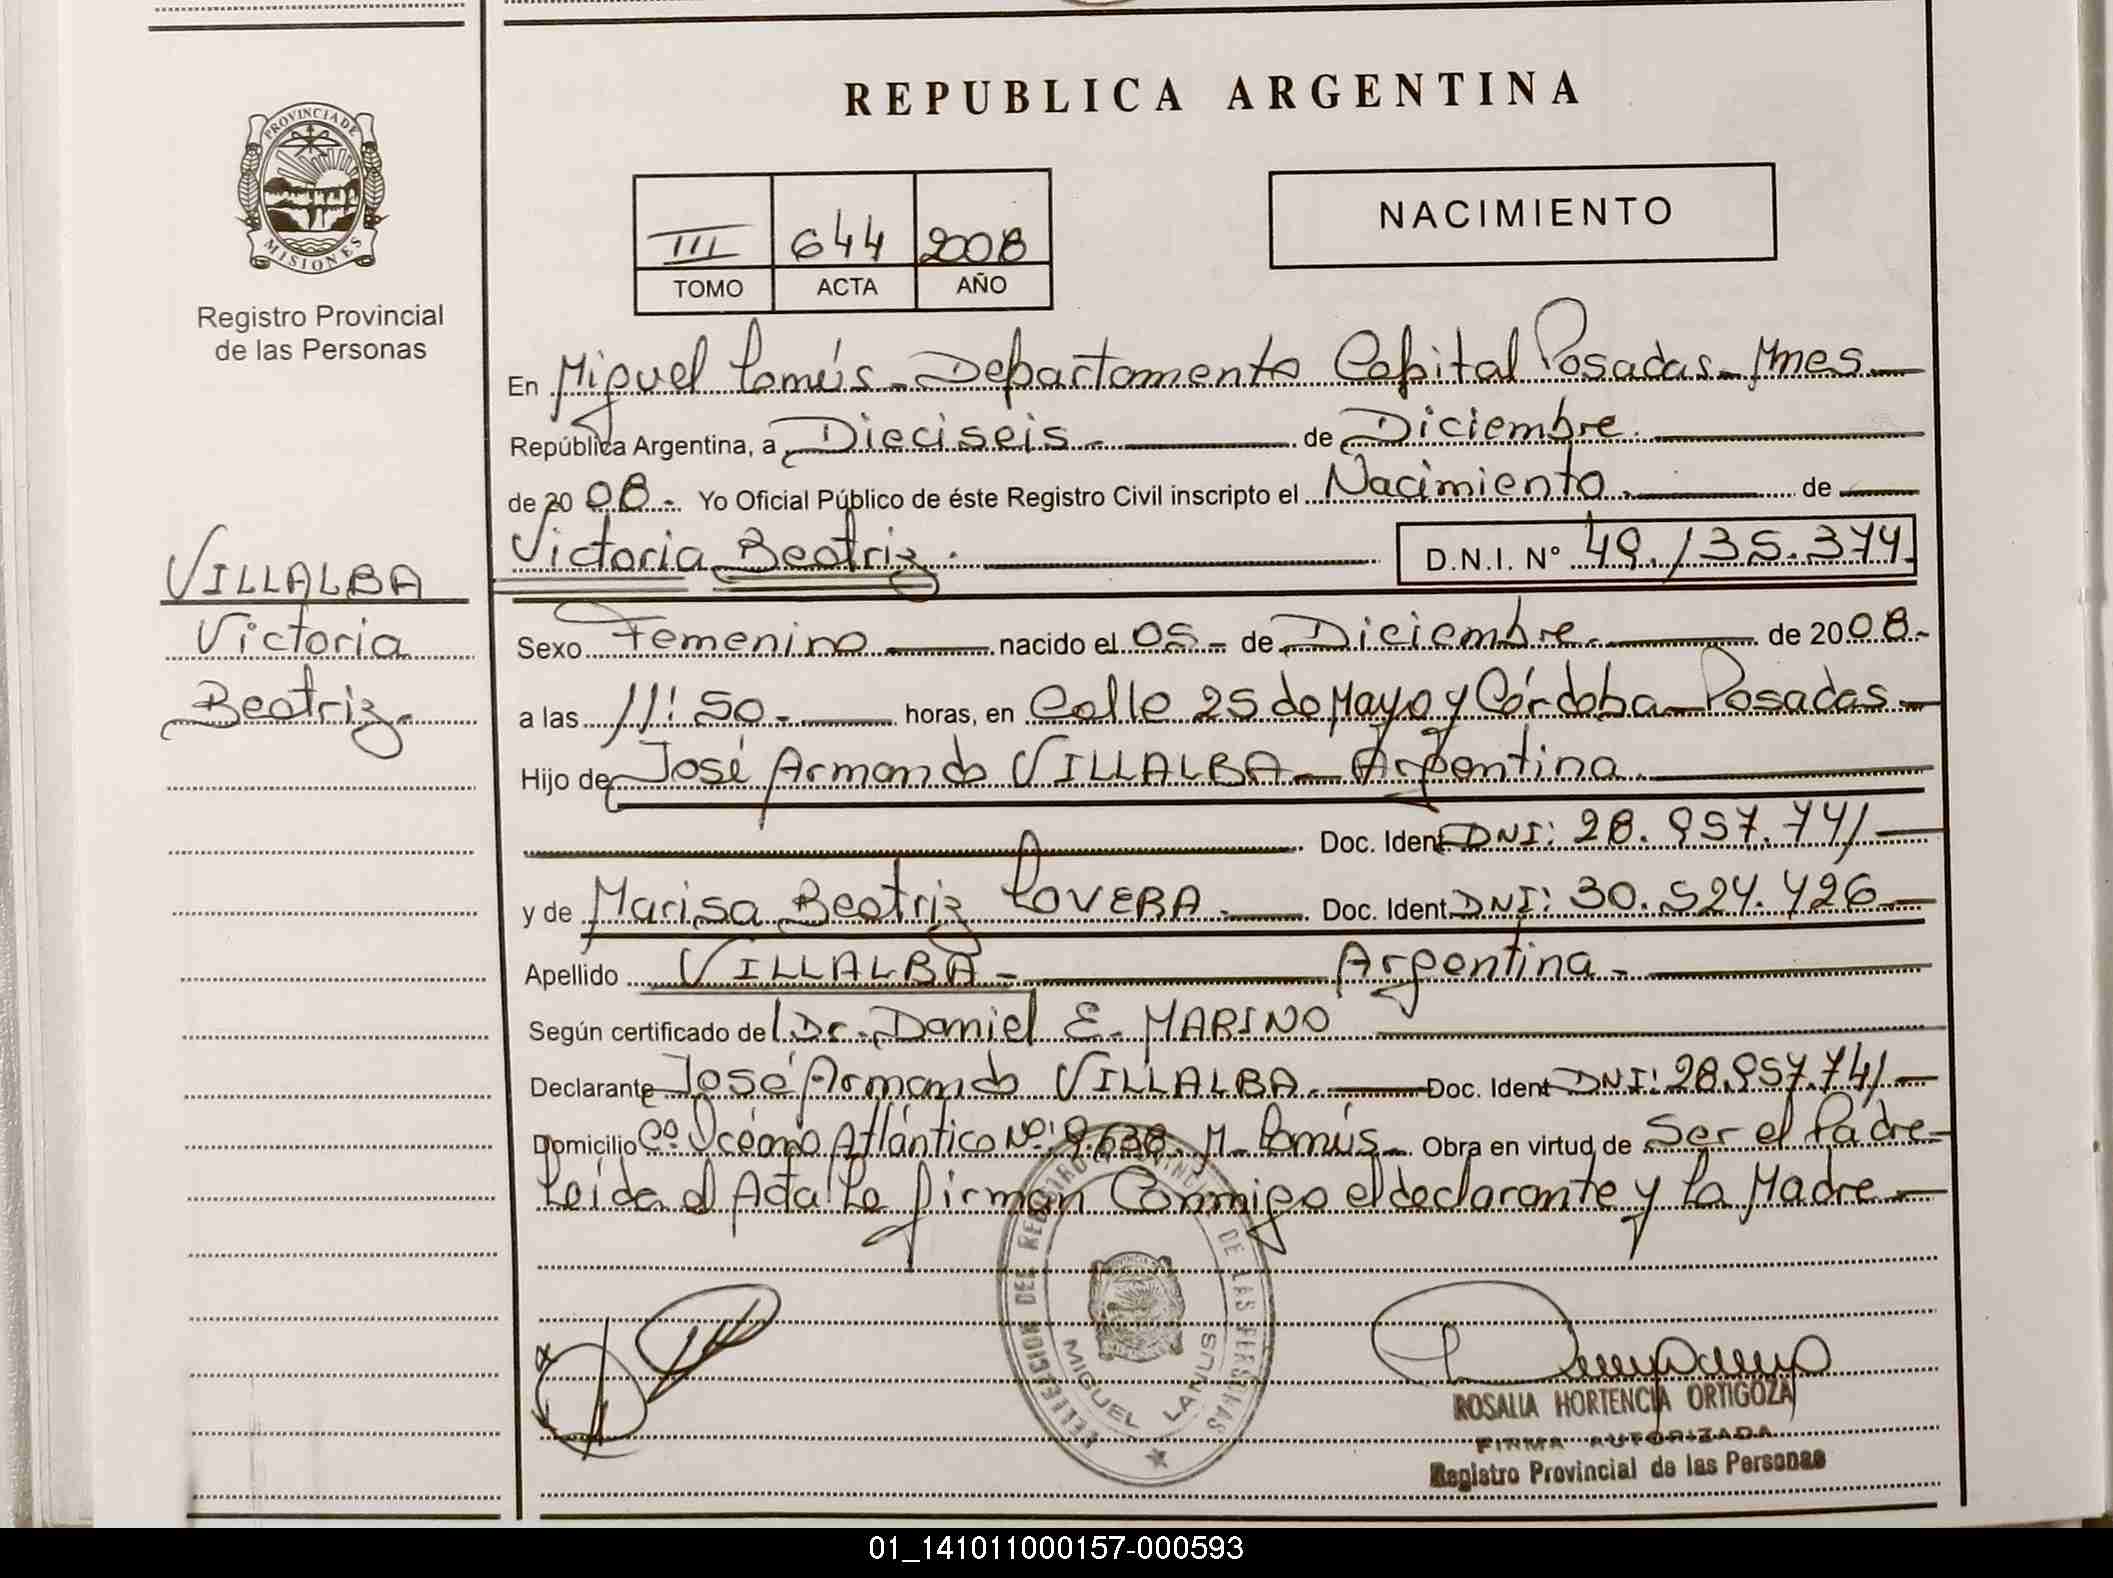 REPUBLICA ARGENTINA
PROVINCIA DE
MISIONES
Registro Provincial
de las Personas
III 644 2008
TOMO ACTA AÑO
NACIMIENTO
En Miguel Lanús - Departamento Capital Posadas - Mnes
República Argentina, a Dieciseis.- de Diciembre.
de 2008.- Yo Oficial Público de éste Registro Civil inscripto el Nacimiento. de
Victoria Beatriz. D.N.I. N° 49.135.374.
VILLALBA
Victoria
Beatriz.-
Sexo Femenino nacido el 05- de Diciembre. de 2008.-
a las 11:50.- horas, en Calle 25 de Mayo y Córdoba - Posadas -
Hijo de José Armando VILLALBA - Argentina.
Doc. Ident. DNI: 28.957.741
y de Marisa Beatriz LOVERA. Doc. Ident. DNI: 30.524.426
Apellido VILLALBA - Argentina -
Según certificado del Dr. Daniel E. MARINO
Declarante José Armando VILLALBA. Doc. Ident DNI: 28.957.741
Domicilio Ce. Océano Atlántico Nº: 9.638. M. Lanús. Obra en virtud de Ser el Padre -
Leída el Acta la firman Conmigo el declarante y la Madre -
DELEGACION DEL REGISTRO PROVINCIAL DE LAS PERSONAS
MIGUEL LANUS
ROSALIA HORTENCIA ORTIGOZA
FIRMA AUTORIZADA
Registro Provincial de las Personas
01_141011000157-000593